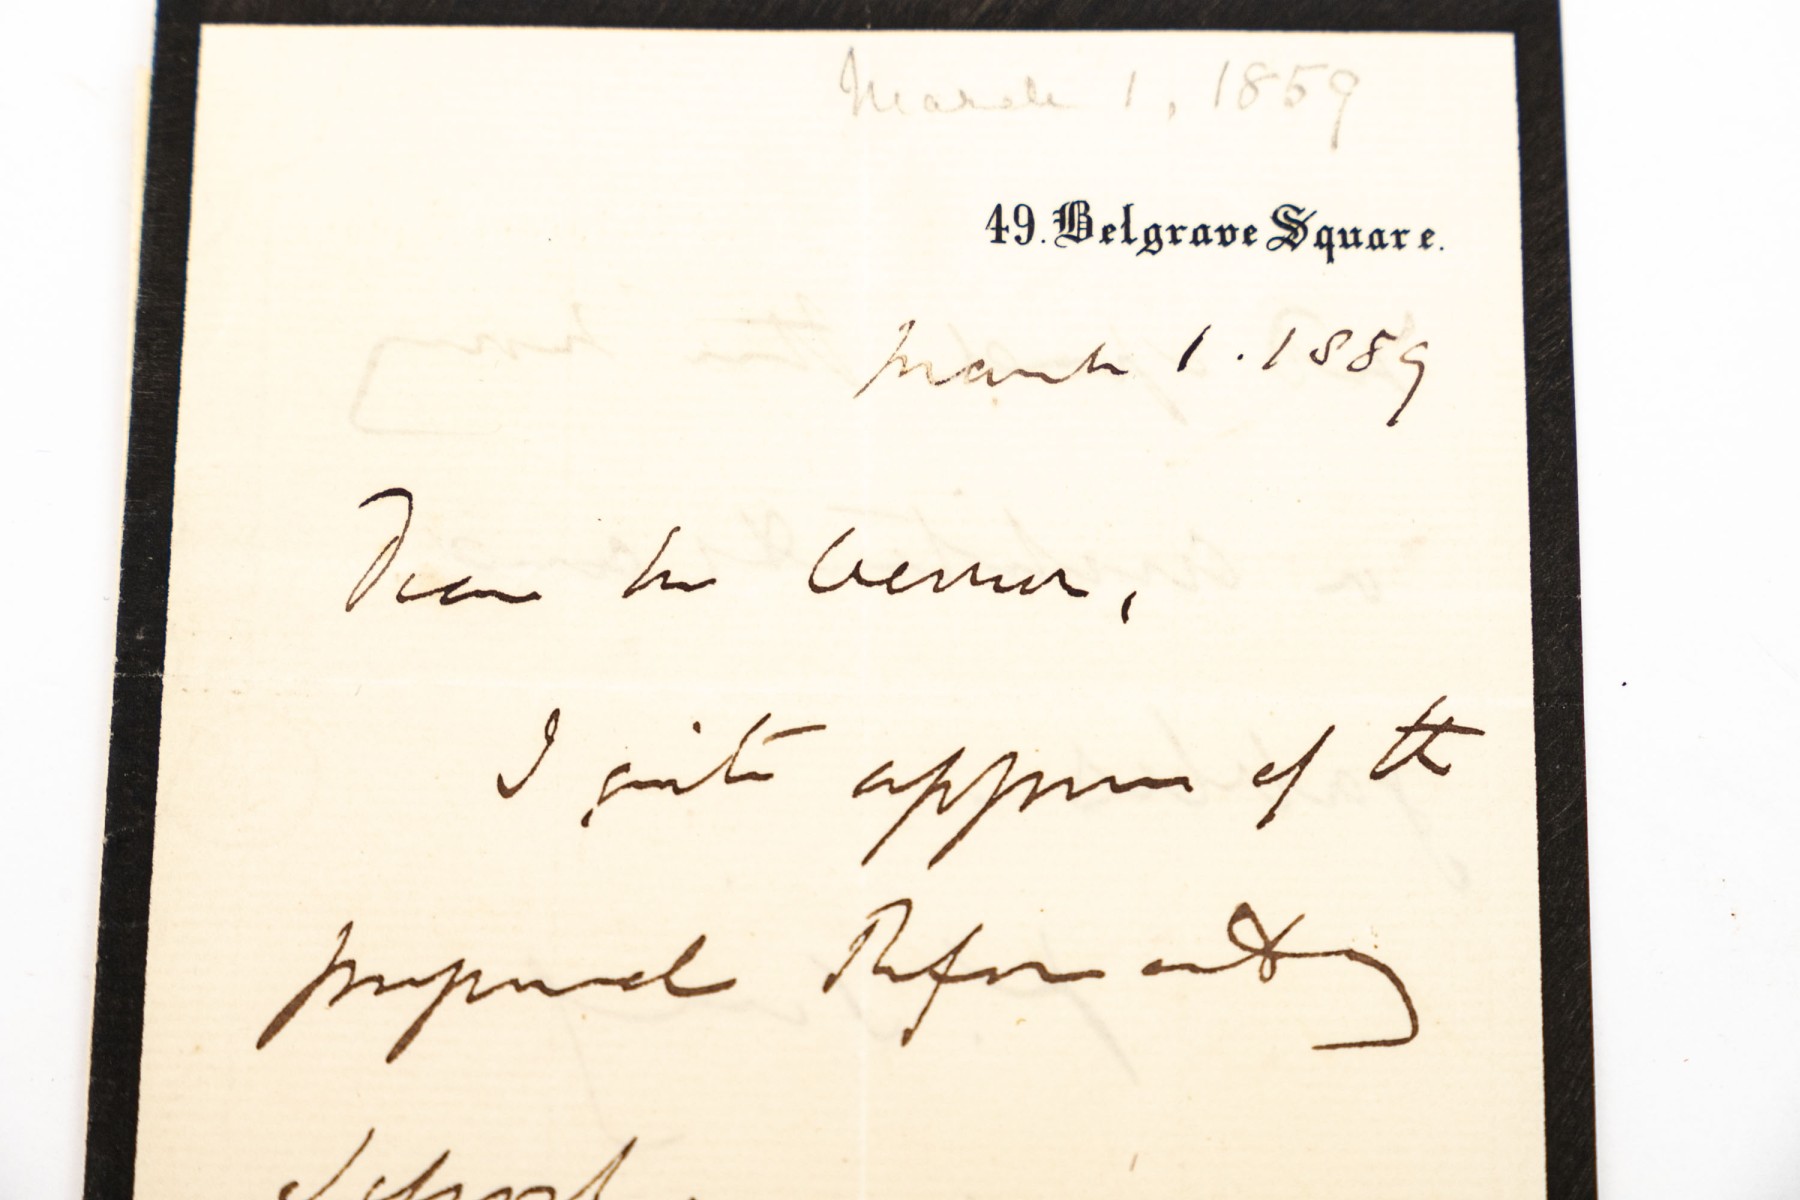 March 1, 1859
49. Belgrave Square.
March 1. 1859
Dear Mr Vernon,
I quite approve of the
proposed Reformatory
School